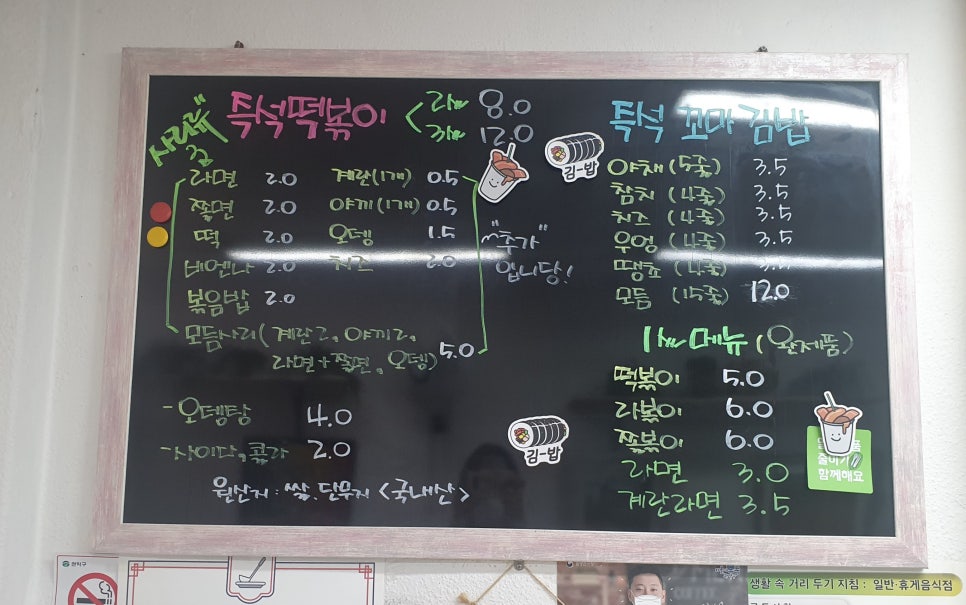 즉석떡볶이 < 2인 8.0
3인 12.0
사리류
라면 2.0 계란(1개) 0.5
쫄면 2.0 야끼(1개) 0.5
떡 2.0 오뎅 1.5
비엔나 2.0 치즈 2.0
볶음밥 2.0
모듬사리(계란2, 야끼2,
라면+쫄면, 오뎅) 5.0
"추가"
입니당!
-오뎅탕 4.0
-사이다, 콜라 2.0
원산지: 쌀, 단무지 <국내산>
김-밥
즉석 꼬마 김밥
야채 (5줄) 3.5
참치 (4줄) 3.5
치즈 (4줄) 3.5
우엉 (4줄) 3.5
땡초 (4줄) 3.5
모듬 (15줄) 12.0
1인 메뉴 (완제품)
떡볶이 5.0
라볶이 6.0
쫄볶이 6.0
라면 3.0
계란라면 3.5
김-밥
즐이기
함께해요
관악구
생활 속 거리 두기 지침 : 일반·휴게음식점